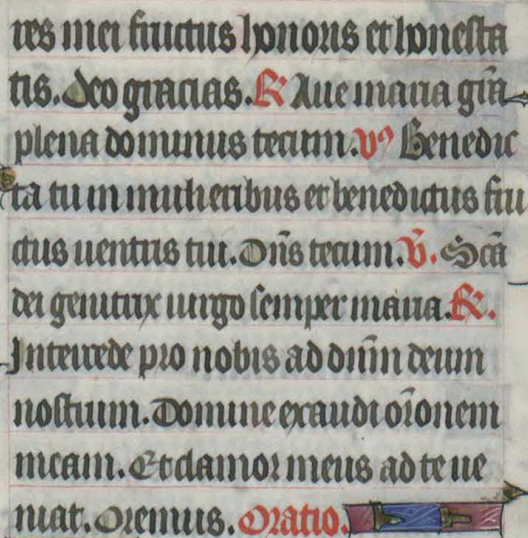 res mei fructus honoris et honesta
tis. Deo gracias. R Aue maria gr̃a
plena dominus tecum. V⁹ Benedic
ta tu in mulieribus et benedictus fru
ctus uentris tui. Dñs tecum. V̄. Sc̃a
dei genitrix uirgo semper maria. R̄.
Intercede pro nobis ad dñm deum
nostrum. Domine exaudi or̄onem
meam. Et clamor meus ad te ue
niat. Oremus. Oratio.